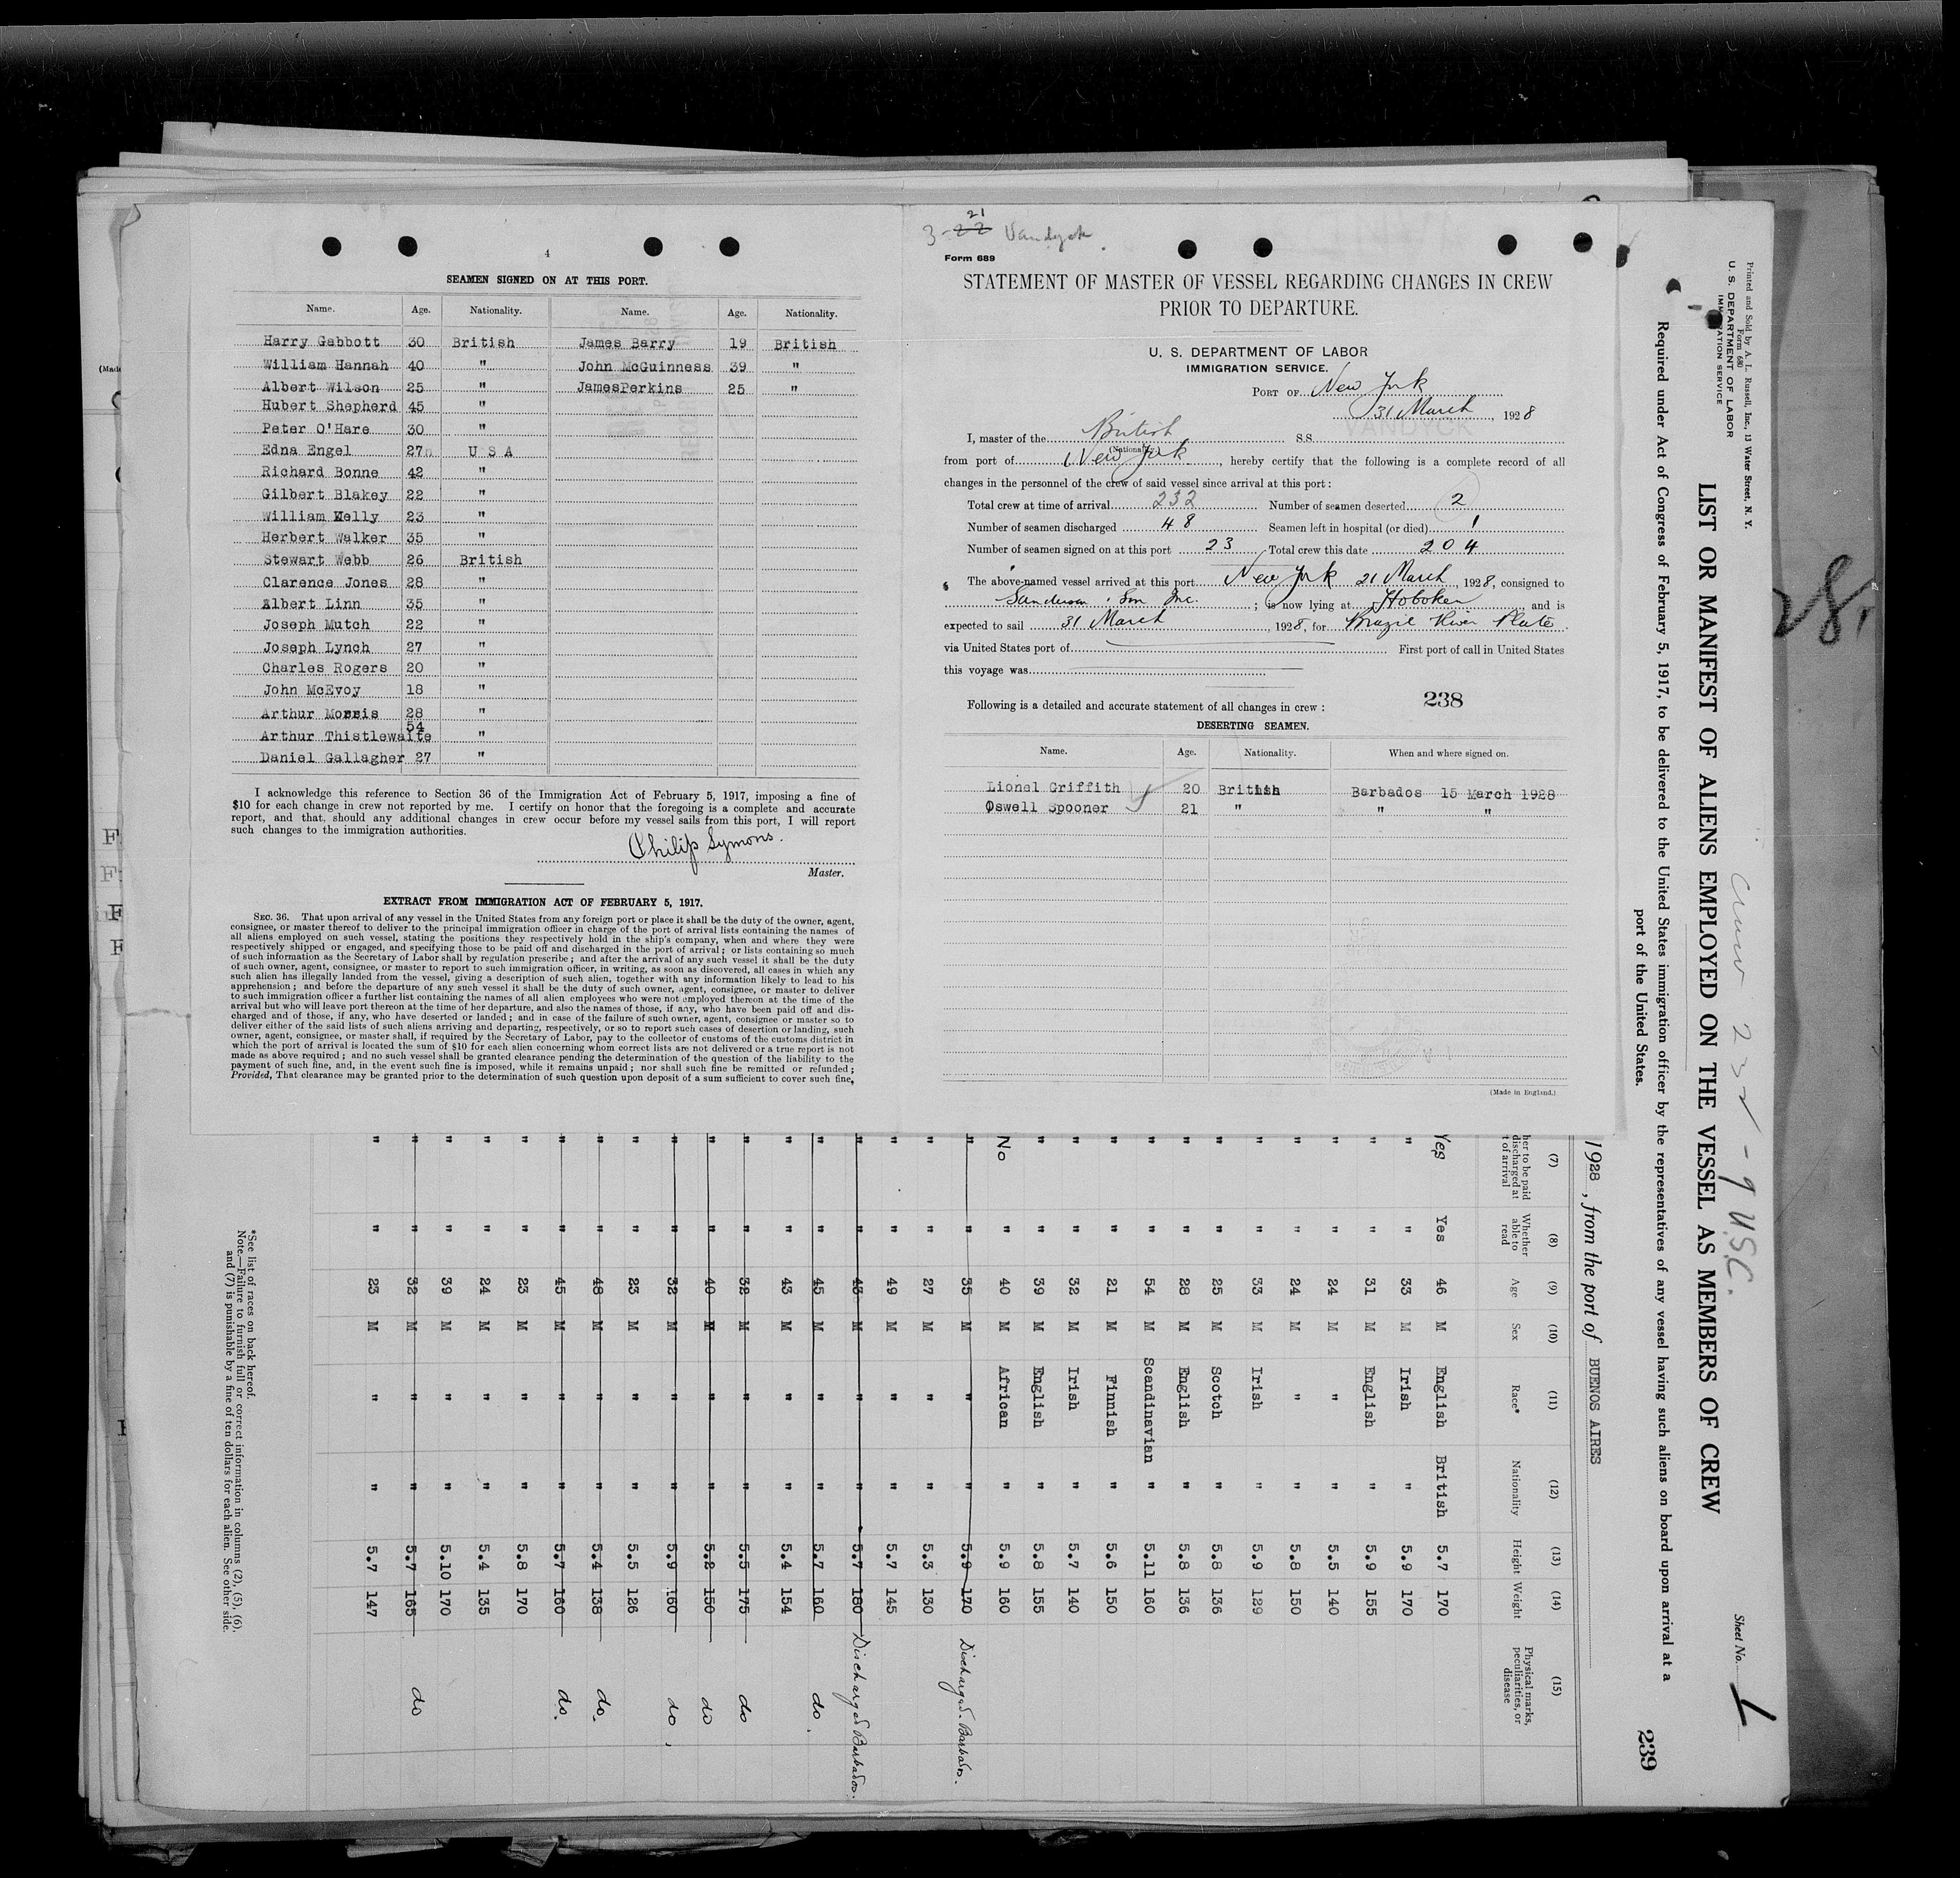 4
SEAMEN SIGNED ON AT THIS PORT.
Name. Age. Nationality. Name. Age. Nationality.
Harry Gabbott 30 British James Barry 19 British
William Hannah 40 " John McGuinness 39 "
Albert Wilson 25 " JamesPerkins 25 "
Hubert Shepherd 45 "
Peter O'Hare 30 "
Edna Engel 27 U S A
Richard Bonne 42 "
Gilbert Blakey 22 "
William Kelly 23 "
Herbert Walker 35 "
Stewart Webb 26 British
Clarence Jones 28 "
Albert Linn 35 "
Joseph Mutch 22 "
Joseph Lynch 27 "
Charles Rogers 20 "
John McEvoy 18 "
Arthur Morris 28 "
54
Arthur Thistlewaite "
Daniel Gallagher 27 "
I acknowledge this reference to Section 36 of the Immigration Act of February 5, 1917, imposing a fine of
$10 for each change in crew not reported by me. I certify on honor that the foregoing is a complete and accurate
report, and that, should any additional changes in crew occur before my vessel sails from this port, I will report
such changes to the immigration authorities.
Philip Symons.
Master.
EXTRACT FROM IMMIGRATION ACT OF FEBRUARY 5, 1917.
SEC. 36. That upon arrival of any vessel in the United States from any foreign port or place it shall be the duty of the owner, agent,
consignee, or master thereof to deliver to the principal immigration officer in charge of the port of arrival lists containing the names of
all aliens employed on such vessel, stating the positions they respectively hold in the ship's company, when and where they were
respectively shipped or engaged, and specifying those to be paid off and discharged in the port of arrival; or lists containing so much
of such information as the Secretary of Labor shall by regulation prescribe; and after the arrival of any such vessel it shall be the duty
of such owner, agent, consignee, or master to report to such immigration officer, in writing, as soon as discovered, all cases in which any
such alien has illegally landed from the vessel, giving a description of such alien, together with any information likely to lead to his
apprehension; and before the departure of any such vessel it shall be the duty of such owner, agent, consignee, or master to deliver
to such immigration officer a further list containing the names of all alien employees who were not employed thereon at the time of the
arrival but who will leave port thereon at the time of her departure, and also the names of those, if any, who have been paid off and dis-
charged and of those, if any, who have deserted or landed; and in case of the failure of such owner, agent, consignee or master so to
deliver either of the said lists of such aliens arriving and departing, respectively, or so to report such cases of desertion or landing, such
owner, agent, consignee, or master shall, if required by the Secretary of Labor, pay to the collector of customs of the customs district in
which the port of arrival is located the sum of $10 for each alien concerning whom correct lists are not delivered or a true report is not
made as above required; and no such vessel shall be granted clearance pending the determination of the question of the liability to the
payment of such fine, and, in the event such fine is imposed, while it remains unpaid; nor shall such fine be remitted or refunded;
Provided, That clearance may be granted prior to the determination of such question upon deposit of a sum sufficient to cover such fine,
21
3-22 Vandyck
Form 689
STATEMENT OF MASTER OF VESSEL REGARDING CHANGES IN CREW
PRIOR TO DEPARTURE.
U. S. DEPARTMENT OF LABOR
IMMIGRATION SERVICE.
PORT OF New York
31 March, 1928
VANDYCK
I, master of the British S.S.
(Nationality)
from port of New York, hereby certify that the following is a complete record of all
changes in the personnel of the crew of said vessel since arrival at this port:
Total crew at time of arrival 232 Number of seamen deserted 2
Number of seamen discharged 48 Seamen left in hospital (or died) 1
Number of seamen signed on at this port 23 Total crew this date 204
The above-named vessel arrived at this port New York 21 March, 1928, consigned to
Sanderson & Son Inc.; is now lying at Hoboken and is
expected to sail 31 March, 1928, for Brazil River Plate.
via United States port of First port of call in United States
this voyage was
238
Following is a detailed and accurate statement of all changes in crew:
DESERTING SEAMEN.
Name. Age. Nationality. When and where signed on.
Lionel Griffith 20 British Barbados 15 March 1928
Oswell Spooner 21 " " "
(Made in England.)
Printed and Sold by A. L. Russell, Inc., 13 Water Street, N. Y.
Form 680
U. S. DEPARTMENT OF LABOR
IMMIGRATION SERVICE
Crew 232 - 9 U.S.C.
Sheet No. 1
LIST OR MANIFEST OF ALIENS EMPLOYED ON THE VESSEL AS MEMBERS OF CREW
Required under Act of Congress of February 5, 1917, to be delivered to the United States immigration officer by the representatives of any vessel having such aliens on board upon arrival at a
port of the United States.
239
28
1928, from the port of BUENOS AIRES
(7) (8) (9) (10) (11) (12) (13) (14) (15)
her to be paid discharged at t of arrival Whether able to read Age Sex Race* Nationality Height Weight Physical marks, peculiarities, or disease
Yes Yes 46 M English British 5.7 170
" " 33 M Irish " 5.9 170
" " 31 M English " 5.9 155
" " 24 M " " 5.5 140
" " 24 M " " 5.8 150
" " 33 M Irish " 5.9 129
" " 25 M Scotch " 5.8 136
" " 28 M English " 5.8 136
" " 54 M Scandinavian " 5.11 160
" " 21 M Finnish " 5.6 150
" " 32 M Irish " 5.7 140
" " 39 M English " 5.8 155
No " 40 M African " 5.9 160
" " 35 M " " 5.9 170 Discharged. Barbados.
" " 27 M " " 5.3 130
" " 49 M " " 5.7 145
" " 43 M " " 5.7 180 Discharged Barbados.
" " 45 M " " 5.7 160 do.
" " 43 M " " 5.4 154
" " 32 M " " 5.5 175 do
" " 40 M " " 5.2 150 do
" " 32 M " " 5.9 160 do,
" " 23 M " " 5.5 126
" " 48 M " " 5.4 138 do.
" " 45 M " " 5.7 160 do.
" " 23 M " " 5.8 170
" " 24 M " " 5.4 135
" " 39 M " " 5.10 170
" " 32 M " " 5.7 165 do
" " 23 M " " 5.7 147
*See list of races on back hereof.
Note.—Failure to furnish full or correct information in columns (2), (5), (6),
and (7) is punishable by a fine of ten dollars for each alien. See other side.